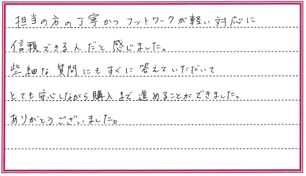 担当の方の丁寧かつフットワークが軽い対応に
信頼できる人だと感じました。
些細な質問にもすぐに答えていただいて
とても安心しながら購入まで進めることができました。
ありがとうございました。